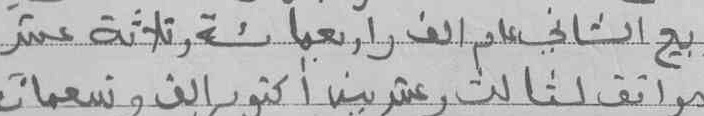 بيع الثاني عام الف واربعمائة وثلاثة عشر
موافق لثالث وعشرين أكتوبر الف وتسعمائ